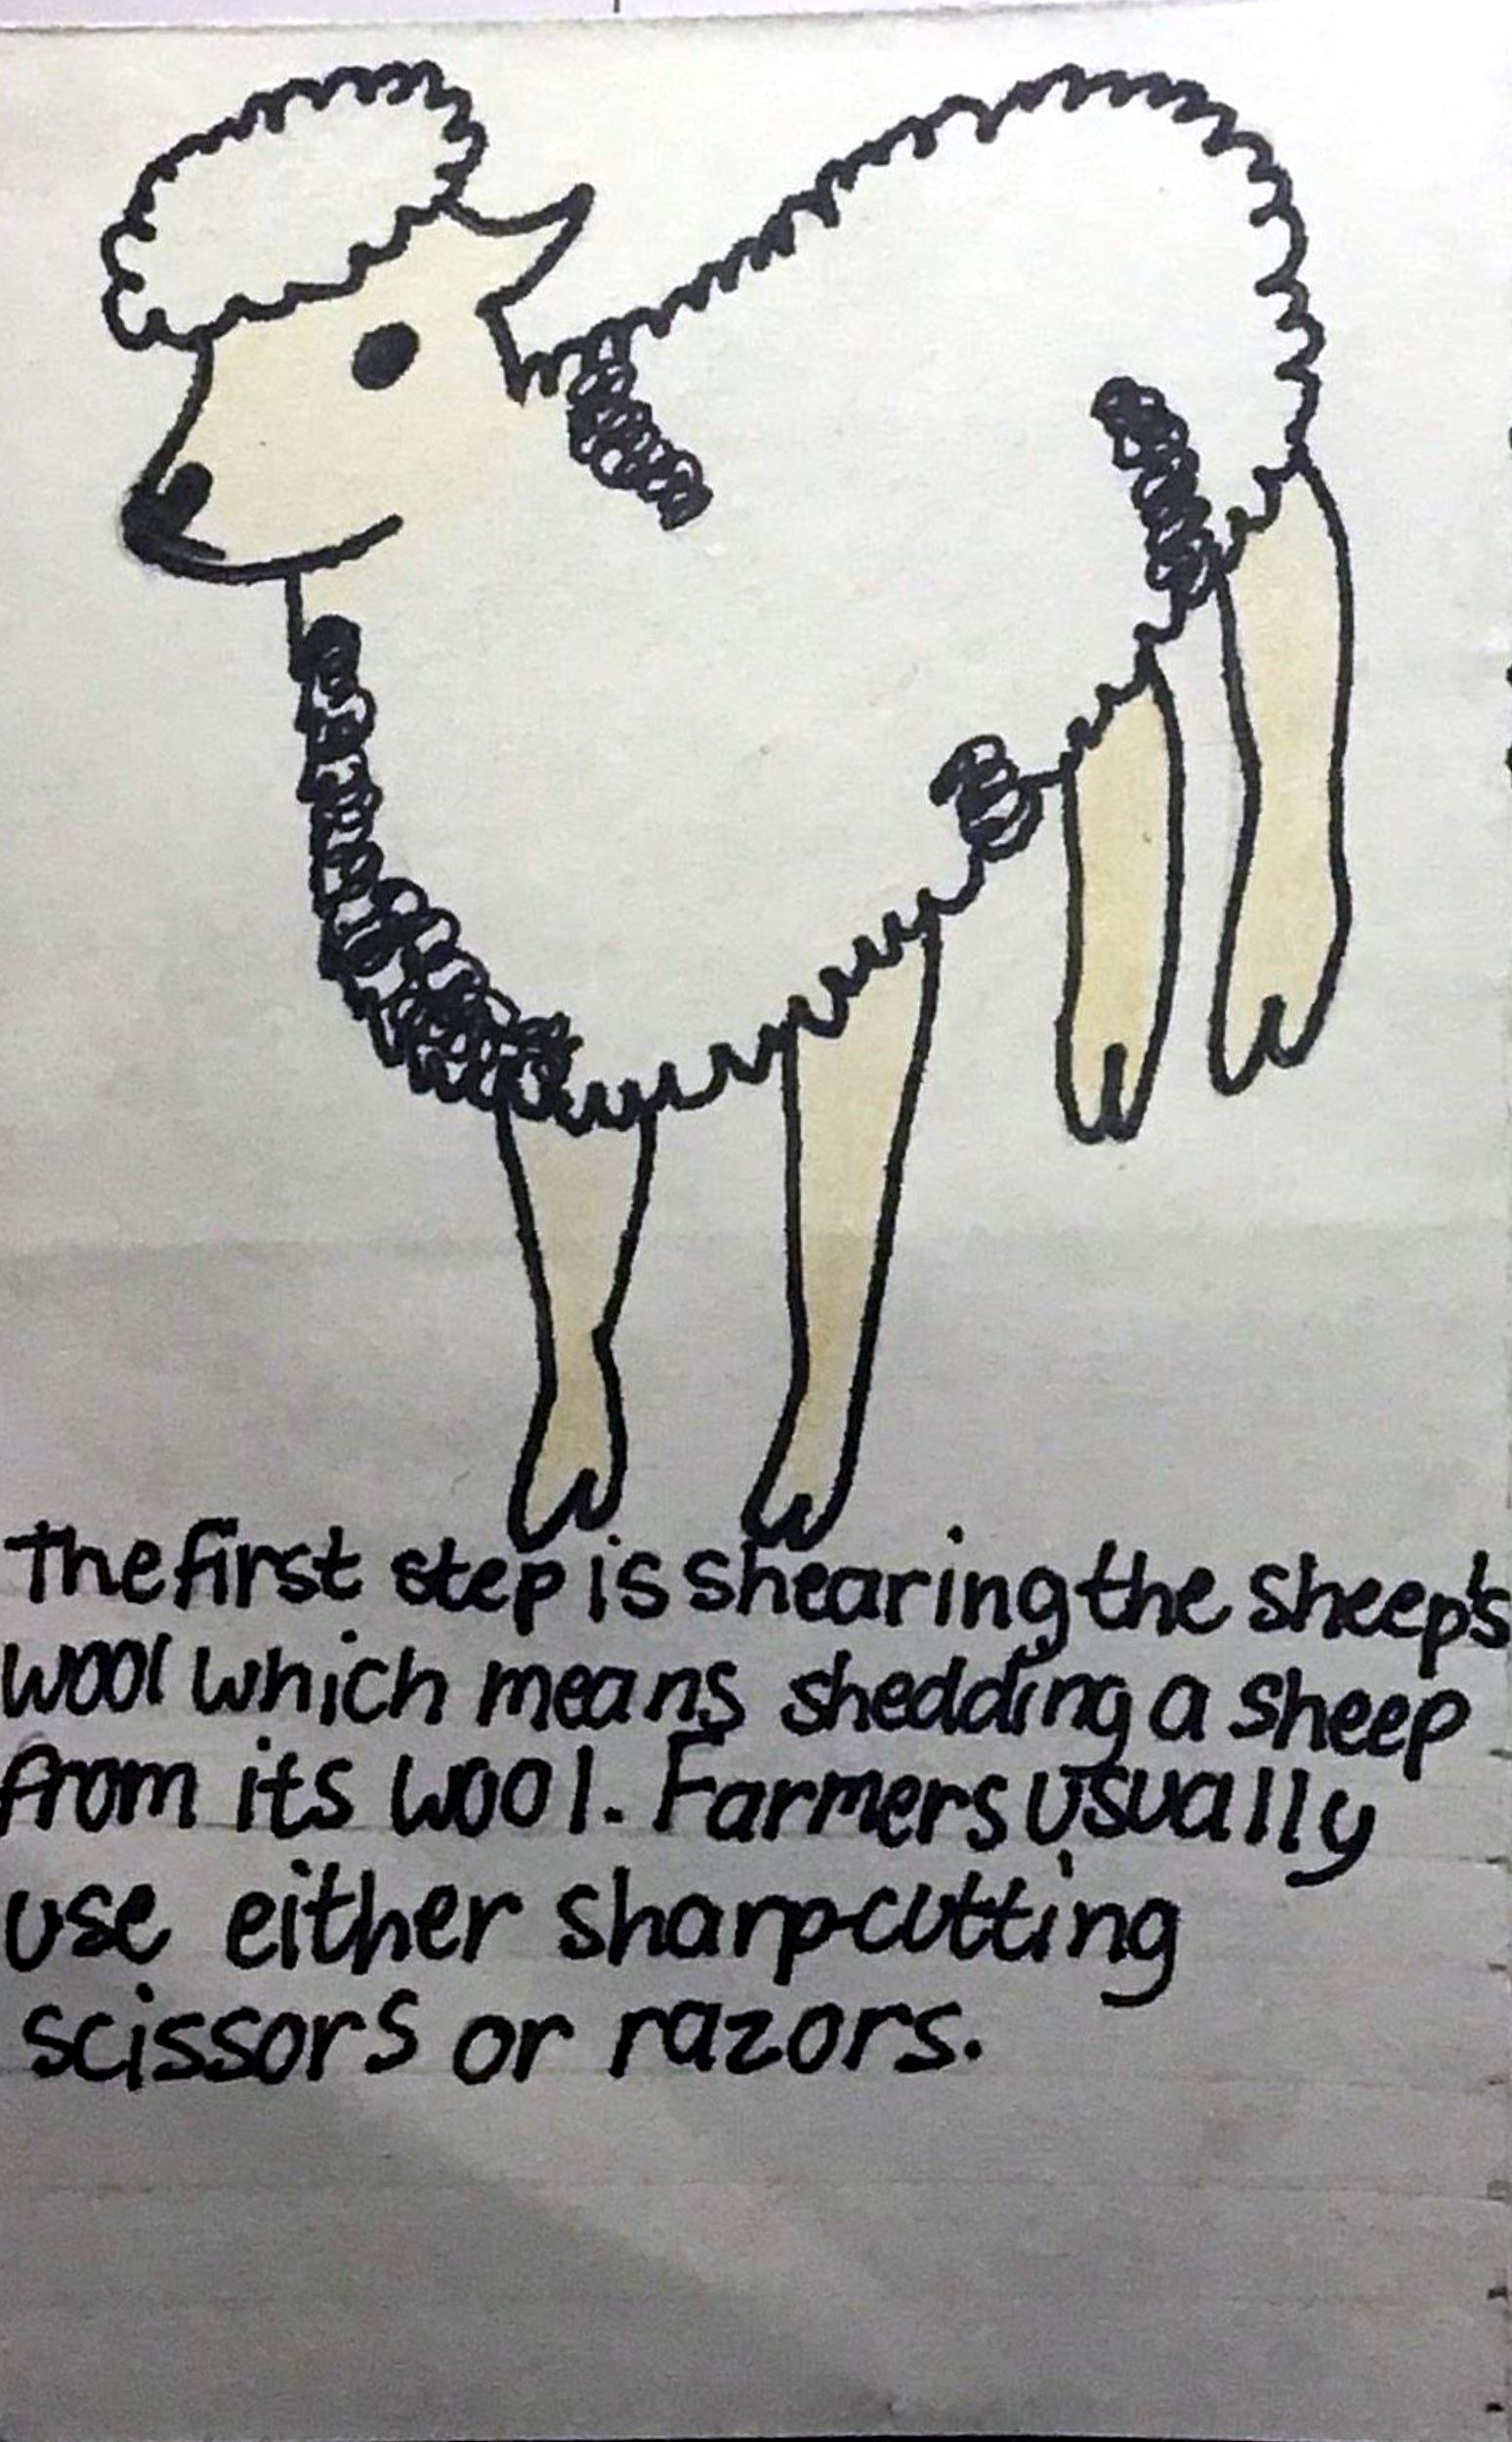 The first step is shearing the sheep's
wool which means shedding a sheep
from its wool. Farmers usually
use either sharp-cutting
scissors or razors.